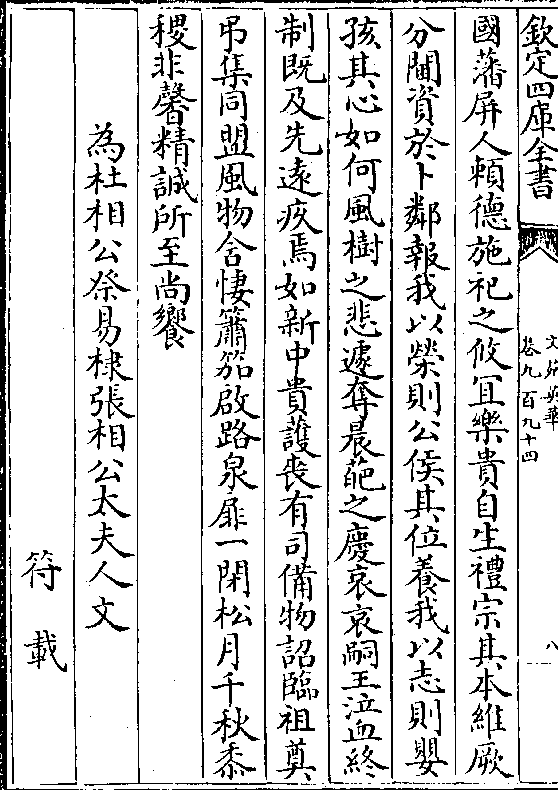 欽定四庫全書
文苑英華
卷九百九十四
八
國藩屏人賴德施祀之攸宜樂貴自生禮宗其本維厥
分閫資於卜鄰報我以榮則公侯其位養我以志則嬰
孩其心如何風樹之悲遽奪晨葩之慶哀哀嗣王泣血終
制既及先遠疚焉如新中貴護喪有司備物詔臨祖奠
弔集同盟風物含悽簫笳啟路泉扉一閉松月千秋黍
稷非馨精誠所至尚饗
為杜相公祭易棣張相公太夫人文
符載